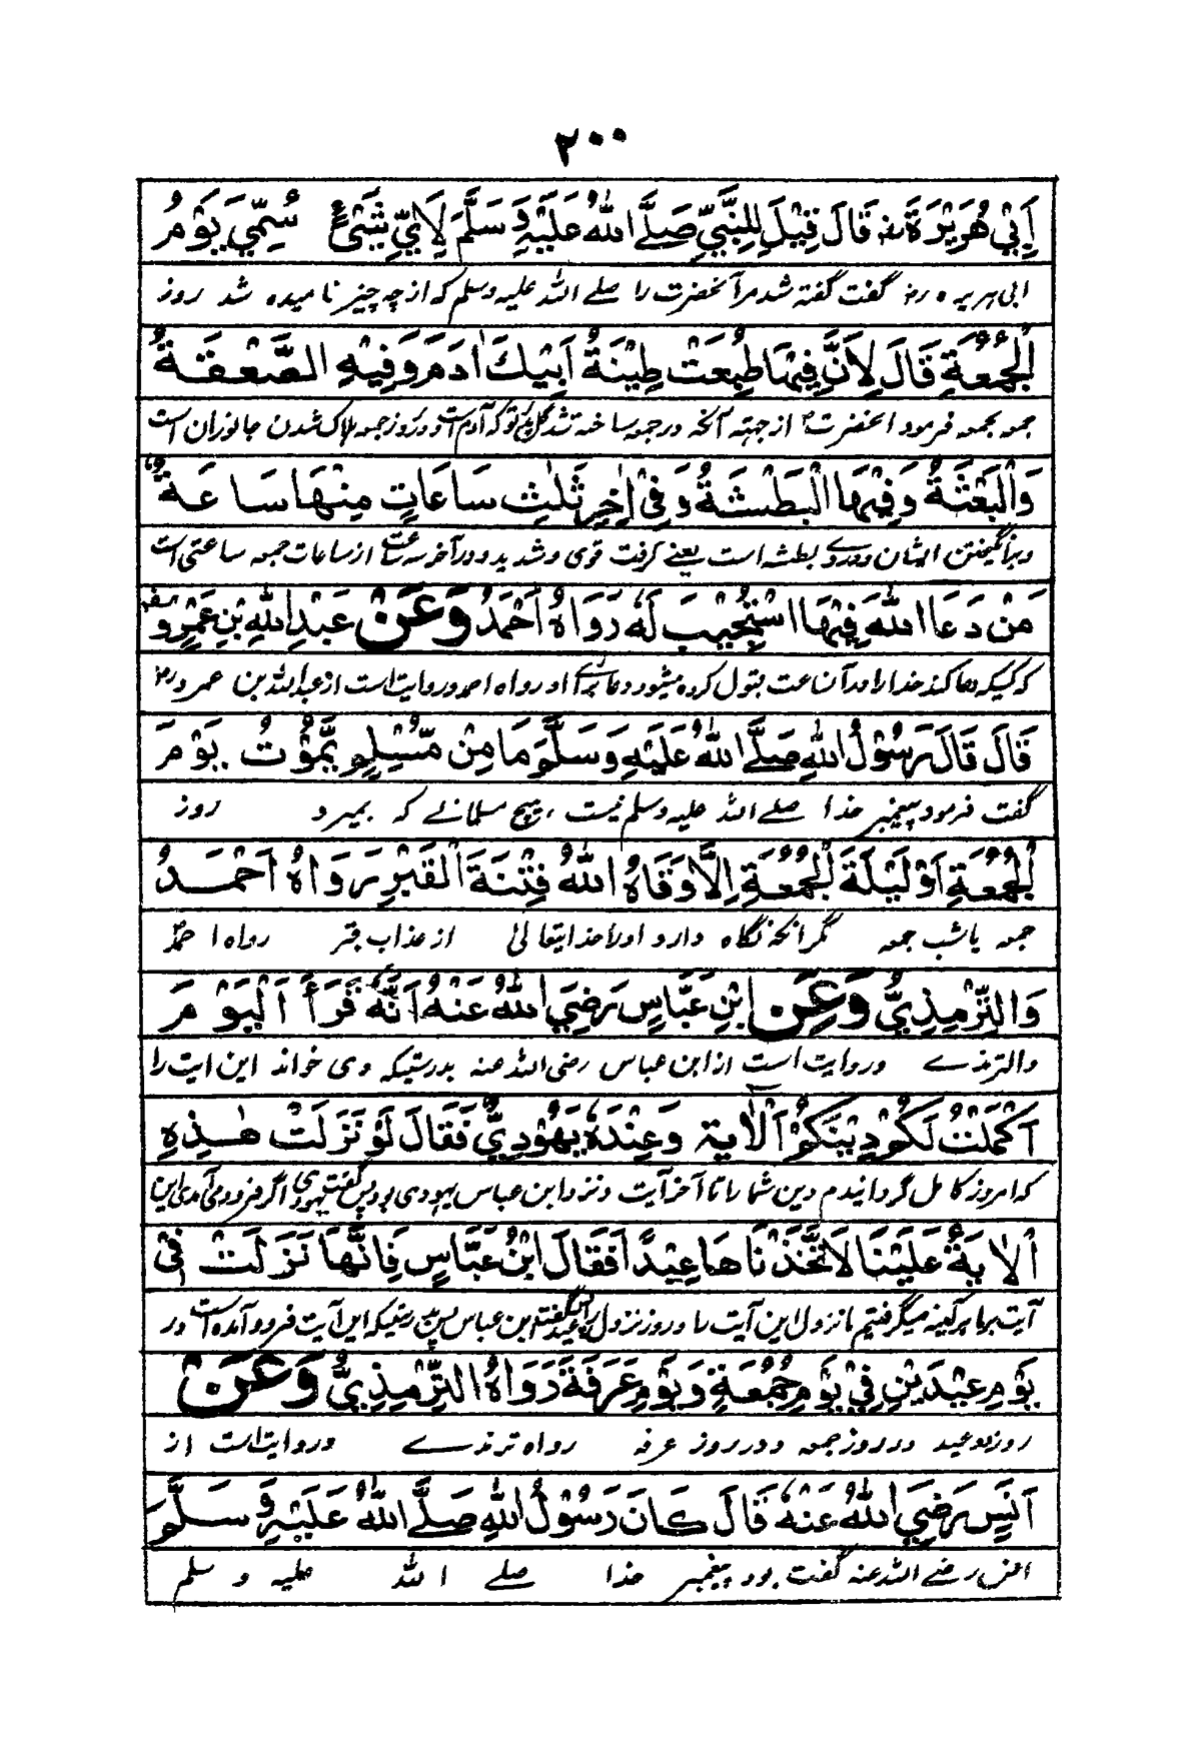 ۲۰۰
اَبِيْ هُرَيْرَةَ رضـ قَالَ قِيْلَ لِلنَّبِيِّ صَلَّے اللهُ عَلَيْهِ وَسَلَّمَ لِاَيِّ شَيْءٍ سُمِّيَ يَوْمُ
ابی ہریرہ رضـ گفت گفتہ شد مر آنحضرت را صلے اللہ علیہ وسلم کہ از چہ چیز نامیدہ شد روز
الْجُمُعَةِ قَالَ لِاَنَّ فِيْهَا طُبِعَتْ طِيْنَةُ اَبِيْكَ اٰدَمَ وَفِيْهِ الصَّعْقَةُ
جمعہ بجمعہ فرمود آنحضرت از جہتہ آنکہ در جمعہ ساختہ شد گل پدر تو کہ آدم است و در روز جمعہ ہلاک شدن جانوران است
وَالْبَعْثَةُ وَفِيْهَا الْبَطْشَةُ وَفِيْ اٰخِرِ ثَلٰثِ سَاعَاتٍ مِنْهَا سَاعَةٌ
وبرانگیختن ایشان ودروے بطشہ است یعنے گرفت قوی وشدید ودر آخر سہ ساعت از ساعات جمعہ ساعتی است
مَنْ دَعَا اللهَ فِيْهَا اسْتُجِيْبَ لَهٗ رَوَاهُ اَحْمَدُ وَعَنْ عَبْدِ اللهِ بْنِ عَمْرٍو رضـ
کہ کسیکہ دعا کند خدا را در آن ساعت قبول کردہ میشود دعا برائے او رواہ احمد وروایت است از عبداللہ بن عمرو رضـ
قَالَ قَالَ رَسُوْلُ اللهِ صَلَّے اللهُ عَلَيْهِ وَسَلَّمَ مَا مِنْ مُّسْلِمٍ يَّمُوْتُ يَوْمَ
گفت فرمود پیغمبر خدا صلے اللہ علیہ وسلم نیست ہیچ مسلمانے کہ بمیرد روز
الْجُمُعَةِ اَوْ لَيْلَةَ الْجُمُعَةِ اِلَّا وَقَاهُ اللهُ فِتْنَةَ الْقَبْرِ رَوَاهُ اَحْمَدُ
جمعہ یا شب جمعہ مگر آنکہ نگاہ دارد اورا خدایتعالیٰ از عذاب قبر رواہ احمد
وَالتِّرْمِذِيُّ وَعَنِ ابْنِ عَبَّاسٍ رَضِيَ اللهُ عَنْهُ اَنَّهٗ قَرَأَ اَلْيَوْمَ
والترمذے وروایت است از ابن عباس رضی اللہ عنہ بدرستیکہ وی خواند این ایت را
اَكْمَلْتُ لَكُمْ دِيْنَكُمْ اَلْاٰيَةَ وَعِنْدَهٗ يَهُوْدِيٌّ فَقَالَ لَوْ نَزَلَتْ هٰذِهِ
کہ امروز کامل گردانیدم دین شما را تا آخر آیت ونزد ابن عباس یہودی بود پس گفت یہودی اگر فرود می آمدی این
الْاٰيَةُ عَلَيْنَا لَاتَّخَذْنَاهَا عِيْدًا فَقَالَ ابْنُ عَبَّاسٍ فَاِنَّهَا نَزَلَتْ فِيْ
آیت بر ما ہر آئینہ میگرفتیم ما نزول این آیت را و روز نزول عید پس گفت ابن عباس پس بدرستیکہ این آیت فرود آمدہ است در
يَوْمِ عِيْدَيْنِ فِيْ يَوْمِ جُمُعَةٍ وَيَوْمِ عَرَفَةَ رَوَاهُ التِّرْمِذِيُّ وَعَنْ
روز دو عید در روز جمعہ ودر روز عرفہ رواہ ترمذے وروایت است از
اَنَسٍ رَضِيَ اللهُ عَنْهٗ قَالَ كَانَ رَسُوْلُ اللهِ صَلَّے اللهُ عَلَيْهِ وَسَلَّمَ
انس رضے اللہ عنہ گفت بود پیغمبر خدا صلے اللہ علیہ وسلم